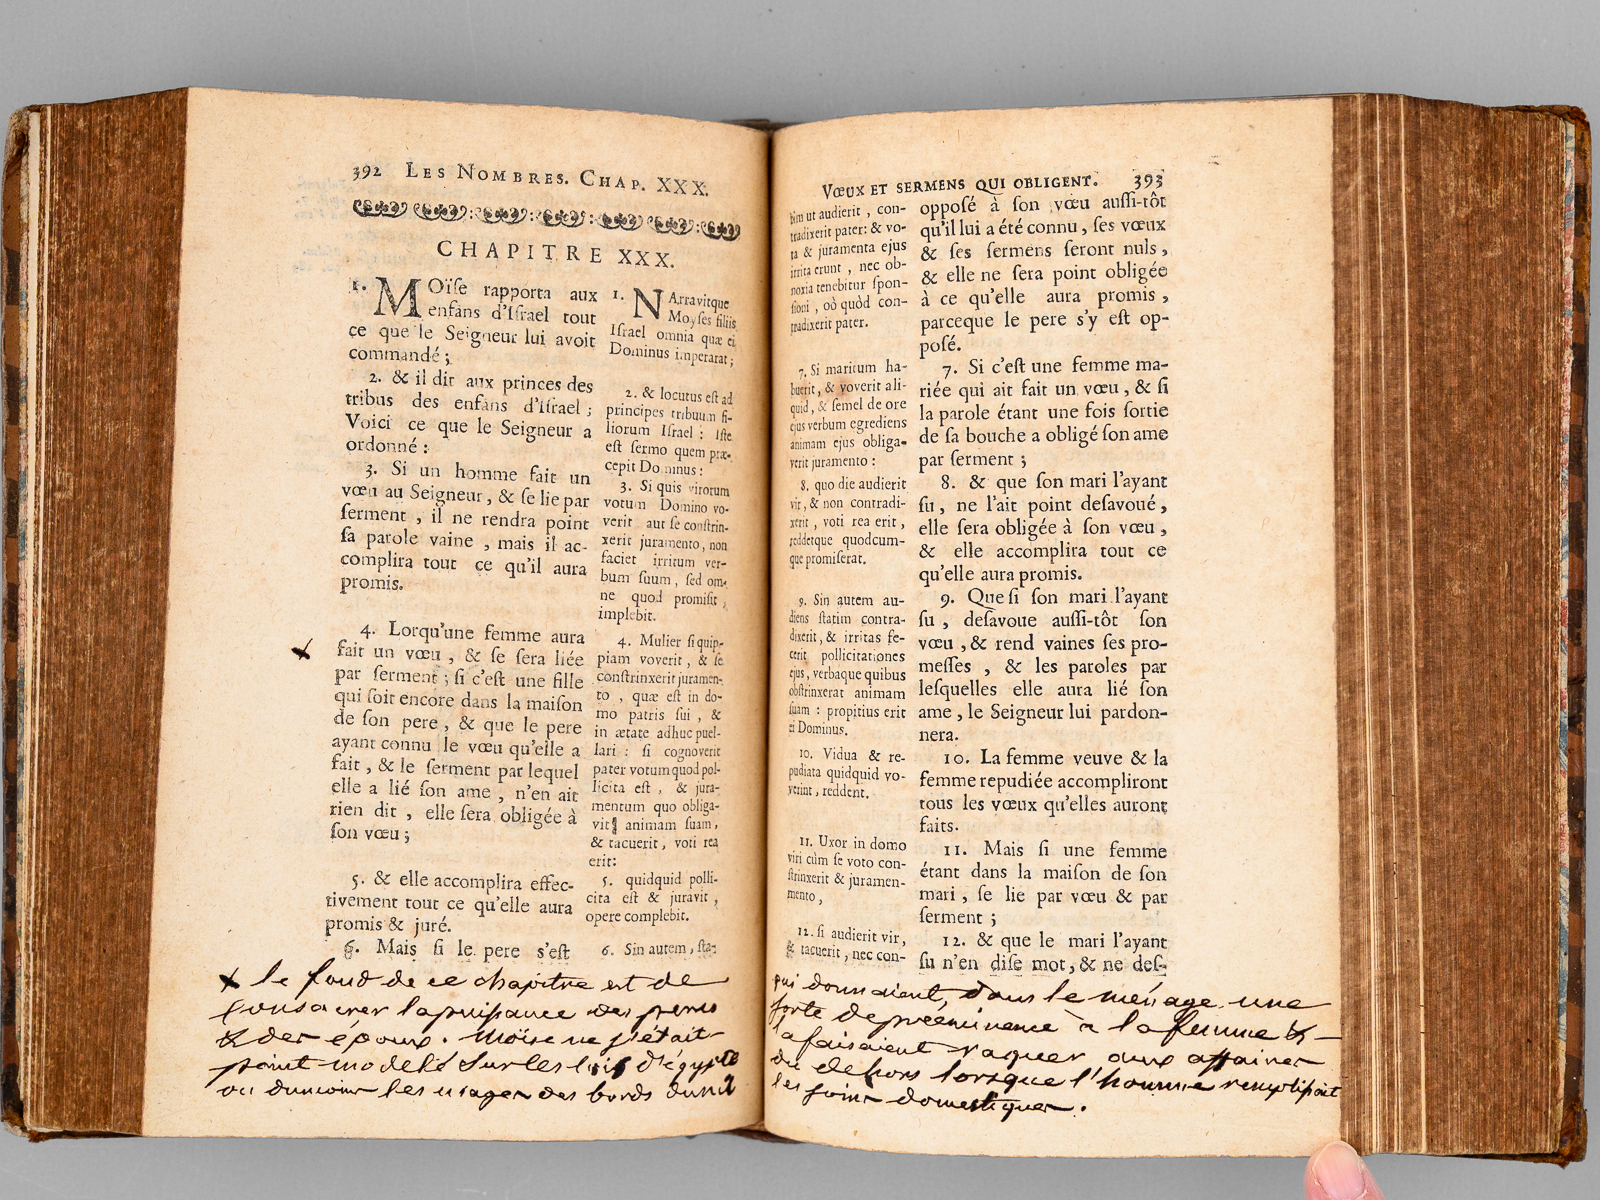 392 LES NOMBRES. CHAP. XXX.
CHAPITRE XXX.
1. MOïſe rapporta aux
enfans d'Iſrael tout
ce que le Seigneur lui avoit
commandé ;
2. & il dit aux princes des
tribus des enfans d'Iſrael ;
Voici ce que le Seigneur a
ordonné :
3. Si un homme fait un
vœu au Seigneur, & ſe lie par
ſerment, il ne rendra point
ſa parole vaine, mais il ac-
complira tout ce qu'il aura
promis.
4. Lorqu'une femme aura
fait un vœu, & ſe ſera liée
par ſerment ; ſi c'eſt une fille
qui ſoit encore dans la maiſon
de ſon pere, & que le pere
ayant connu le vœu qu'elle a
fait, & le ſerment par lequel
elle a lié ſon ame, n'en ait
rien dit, elle ſera obligée à
ſon vœu ;
5. & elle accomplira effec-
tivement tout ce qu'elle aura
promis & juré.
6. Mais ſi le pere s'eſt
1. NArravitque
Moyſes filiis
Iſrael omnia quæ ei
Dominus imperarat ;
2. & locutus eſt ad
principes tribuum fi-
liorum Iſrael : Iſte
eſt ſermo quem præ-
cepit Dominus :
3. Si quis virorum
votum Domino vo-
verit aut ſe conſtrin-
xerit juramento, non
faciet irritum ver-
bum ſuum, ſed om-
ne quod promiſit,
implebit.
4. Mulier ſi quip-
piam voverit, & ſe
conſtrinxerit juramen-
to, quæ eſt in do-
mo patris ſui, &
in ætate adhuc puel-
lari : ſi cognoverit
pater votum quod pol-
licita eſt, & jura-
mentum quo obliga-
vit animam ſuam,
& tacuerit, voti rea
erit:
5. quidquid polli-
cita eſt & juravit,
opere complebit.
6. Sin autem, ſta-
x le fond de ce chapitre est de
consacrer la puissance des peres
& des époux. Moïse ne s'était
point modelé sur les lois d'égypte
ou du moins les usages des bords du nil
VœUX ET SERMENS QUI OBLIGENT. 393
tim ut audierit, con-
tradixerit pater: & vo-
ta & juramenta ejus
irrita erunt, nec ob-
noxia tenebitur ſpon-
ſioni, oò quòd con-
tradixerit pater.
7. Si maritum ha-
buerit, & voverit ali-
quid, & ſemel de ore
ejus verbum egrediens
animam ejus obliga-
verit juramento :
8. quo die audierit
vir, & non contradi-
xerit, voti rea erit,
reddetque quodcum-
que promiſerat.
9. Sin autem au-
diens ſtatim contra-
dixerit, & irritas fe-
cerit pollicitationes
ejus, verbaque quibus
obſtrinxerat animam
ſuam : propitius erit
ei Dominus.
10. Vidua & re-
pudiata quidquid vo-
verint, reddent.
11. Uxor in domo
viri cùm ſe voto con-
ſtrinxerit & juramen-
mento,
12. ſi audierit vir,
& tacuerit, nec con-
oppoſé à ſon vœu auſſi-tôt
qu'il lui a été connu, ſes vœux
& ſes ſermens ſeront nuls,
& elle ne ſera point obligée
à ce qu'elle aura promis,
parceque le pere s'y eſt op-
poſé.
7. Si c'eſt une femme ma-
riée qui ait fait un vœu, & ſi
la parole étant une fois ſortie
de ſa bouche a obligé ſon ame
par ſerment ;
8. & que ſon mari l'ayant
ſu, ne l'ait point deſavoué,
elle ſera obligée à ſon vœu,
& elle accomplira tout ce
qu'elle aura promis.
9. Que ſi ſon mari l'ayant
ſu, deſavoue auſſi-tôt ſon
vœu, & rend vaines ſes pro-
meſſes, & les paroles par
leſquelles elle aura lié ſon
ame, le Seigneur lui pardon-
nera.
10. La femme veuve & la
femme repudiée accompliront
tous les vœux qu'elles auront
faits.
11. Mais ſi une femme
étant dans la maiſon de ſon
mari, ſe lie par vœu & par
ſerment ;
12. & que le mari l'ayant
ſu n'en diſe mot, & ne deſ-
qui donnaient, dans le ménage une
sorte de prééminence à la femme &
la faisaient vaquer aux affaires
du dehors lorsque l'homme remplissait
les soins domestiques.